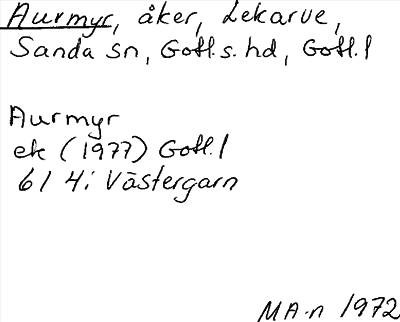 Aurmyr, åker, Lekarve,
Sanda sn, Gotl.s. hd, Gotl. l
Aurmyr
ek (1977) Gotl. l
6I 4i Västergarn
MA-n 1972